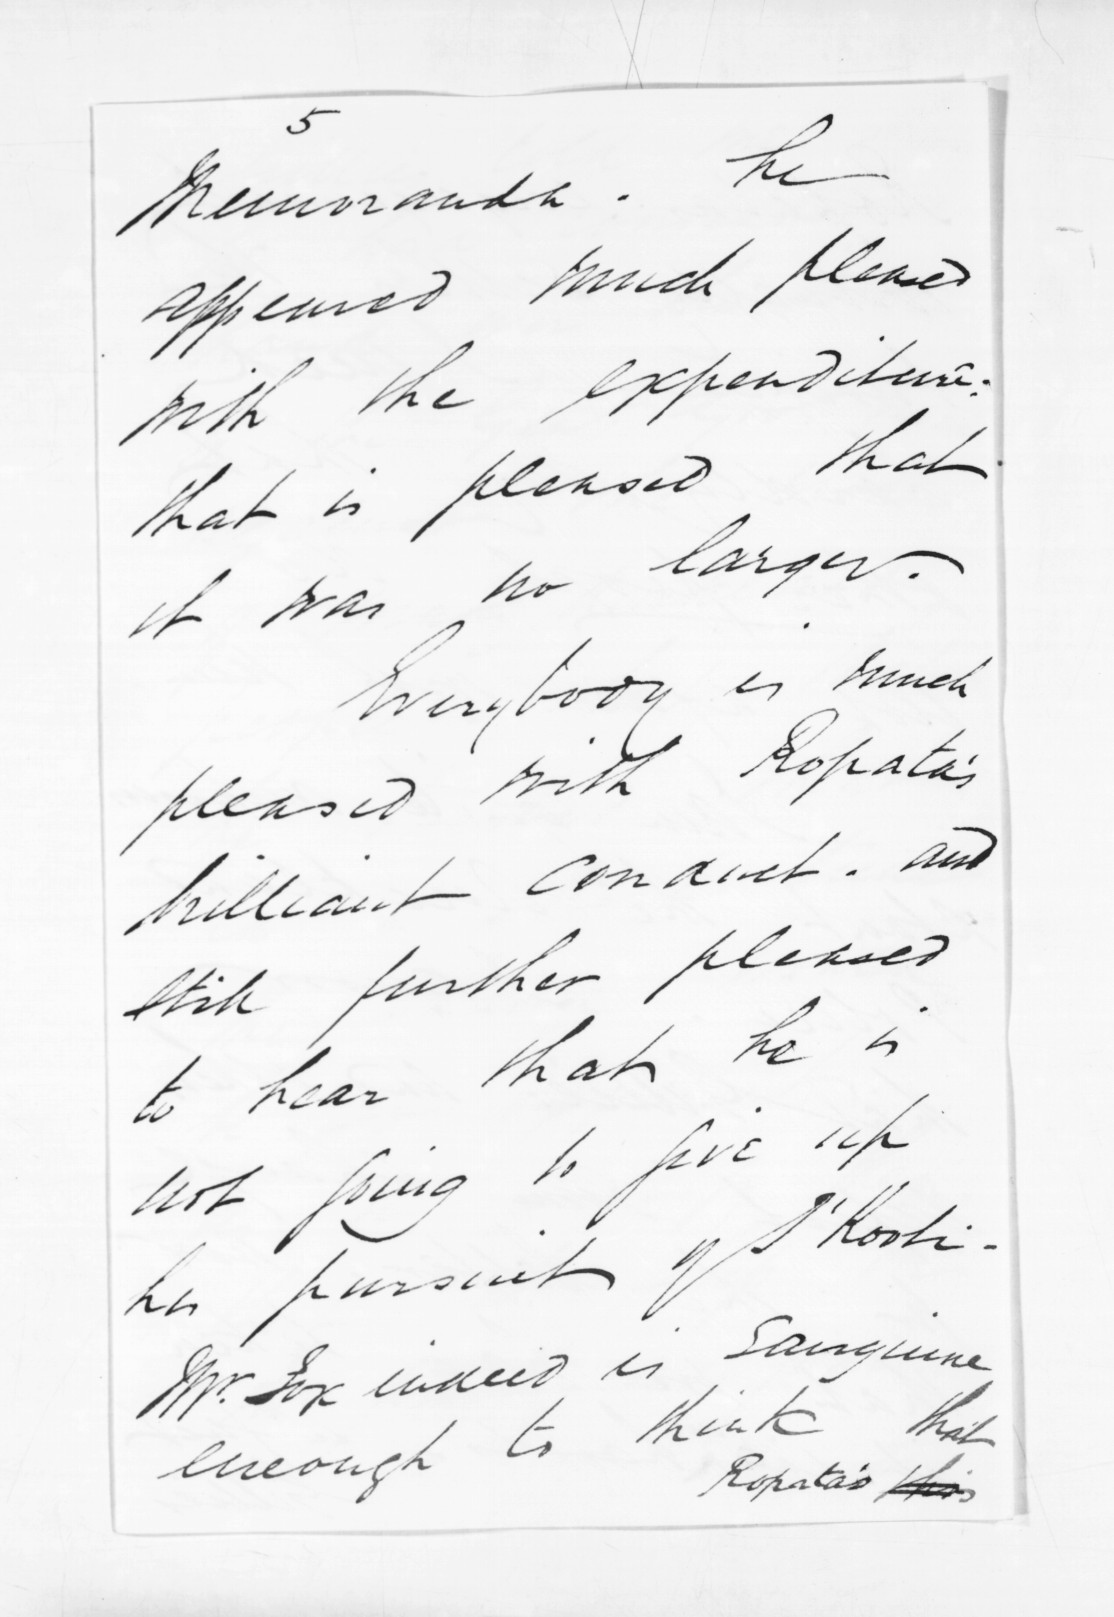 5
Memoranda. he
appeared much pleased
with the expenditure.
that is pleased that
it was no larger.
Everybody is much
pleased with Ropata's
brilliant conduct. and
still further pleased
to hear that he is
not going to give up
his pursuit of T'Kooti-
Mr. Fox indeed is sanguine
eneough to think that
Ropata's this